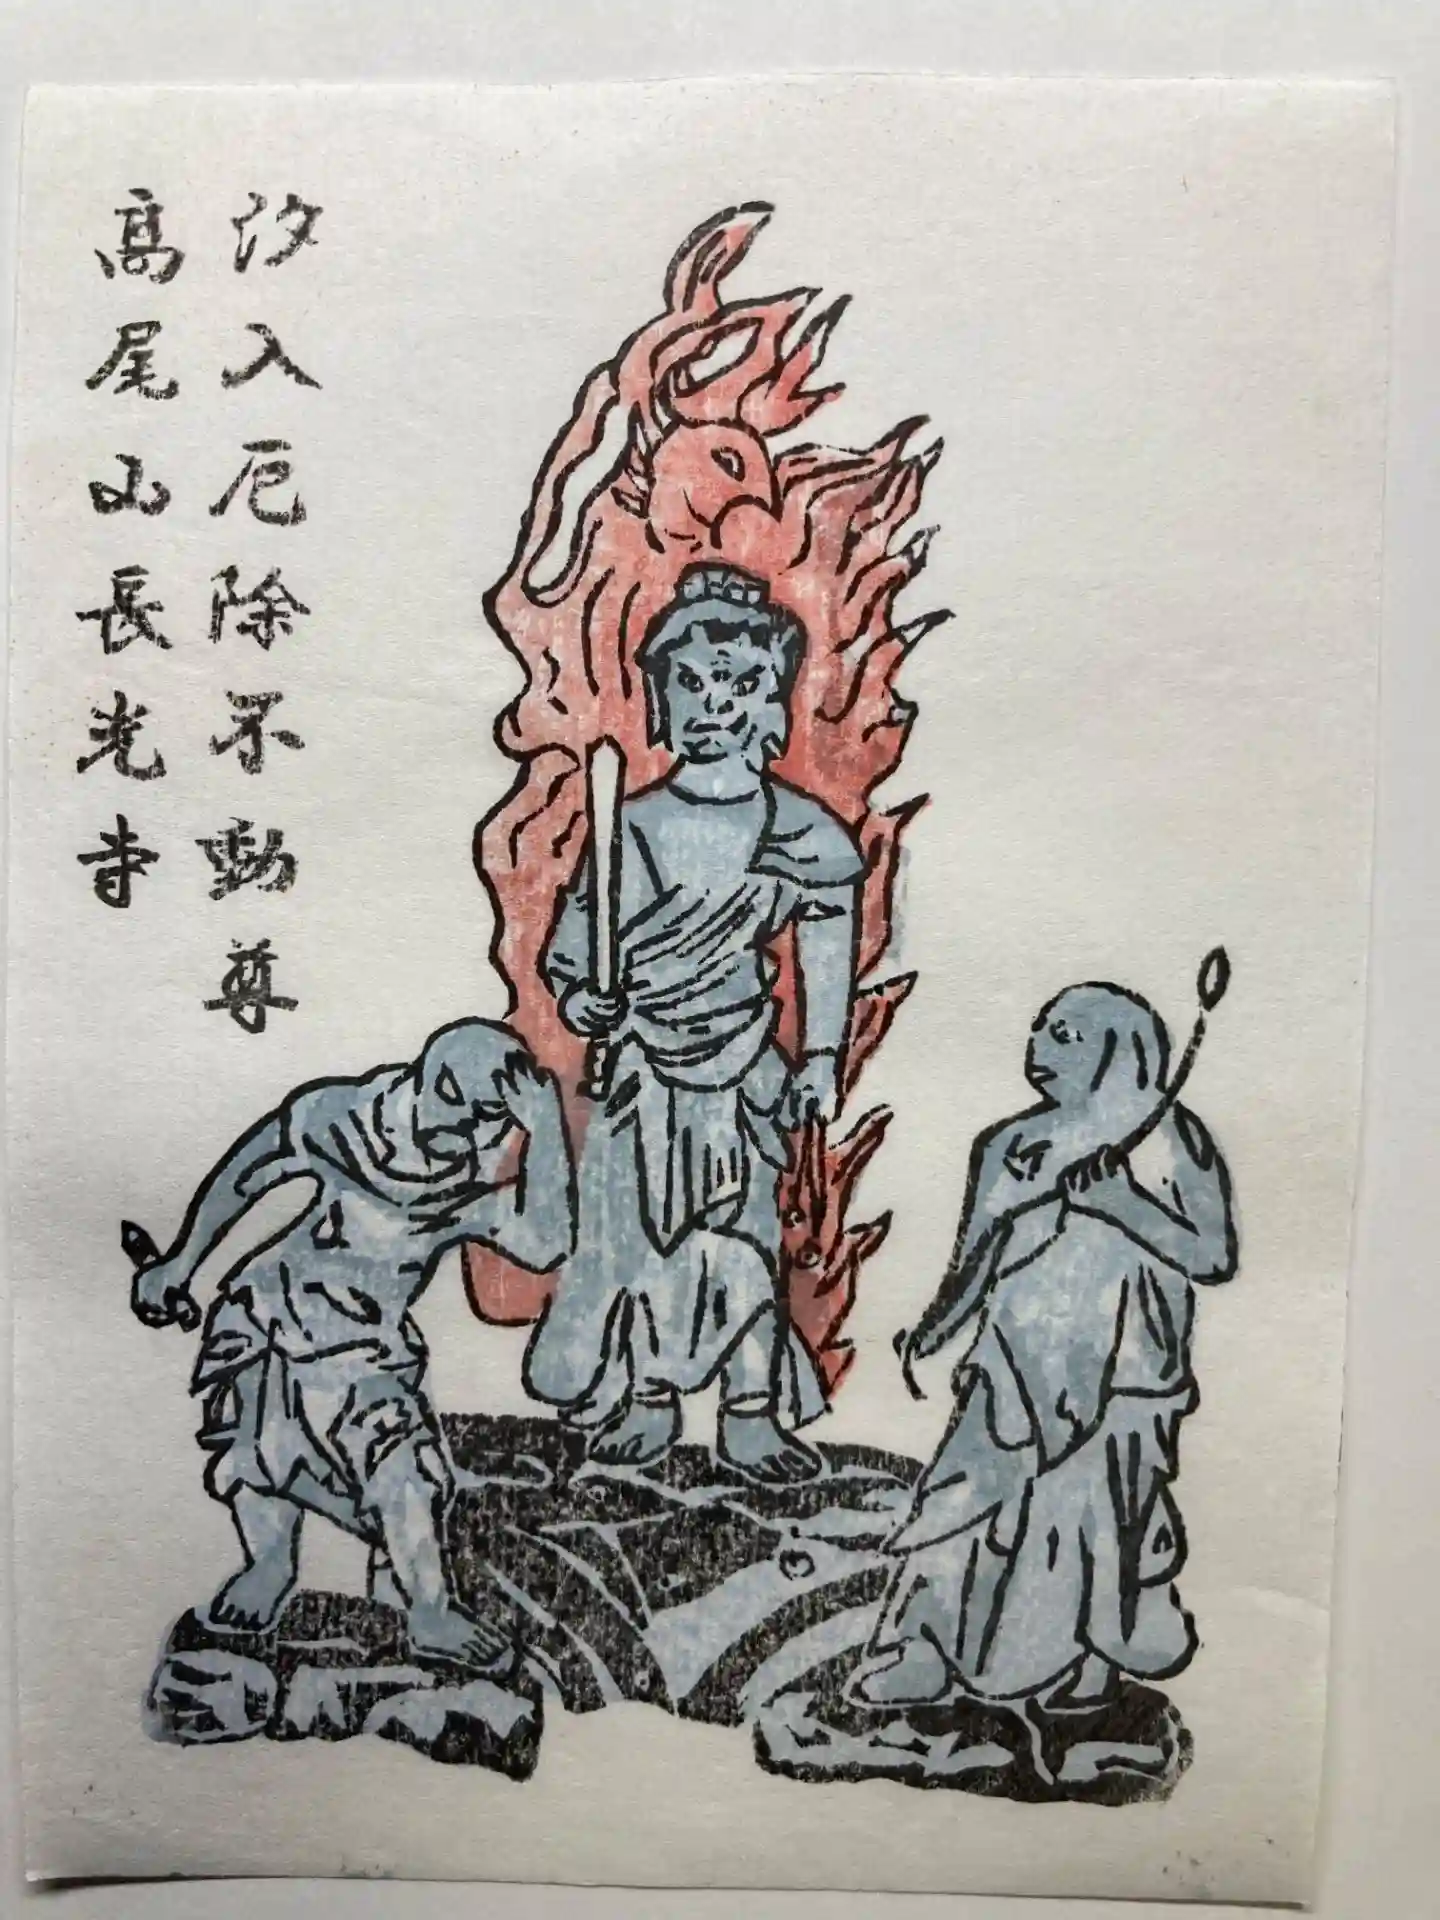 汐入厄除不動尊
高尾山長光寺